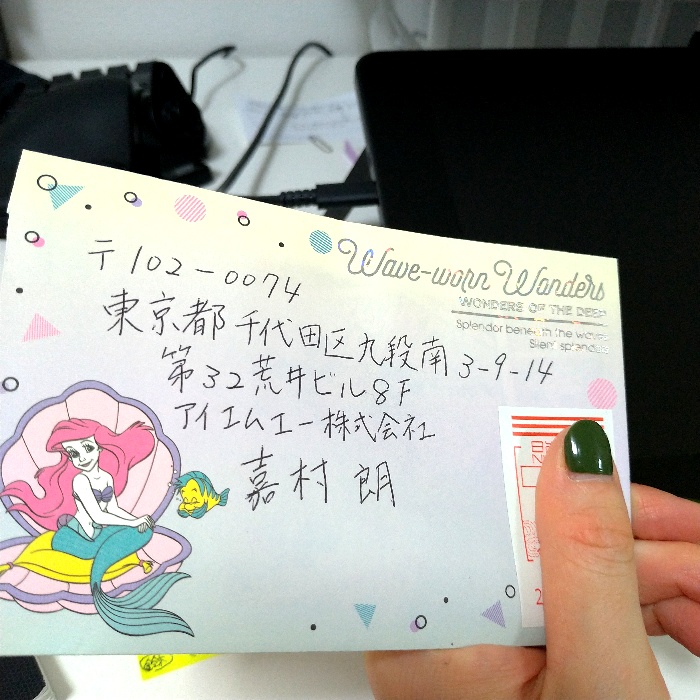 Wave-worn Wonders
WONDERS OF THE DEEP
Splendor beneath the waves
Silent splendor
〒102-0074
東京都千代田区九段南3-9-14
第32荒井ビル8F
アイエムエー株式会社
嘉村 朗